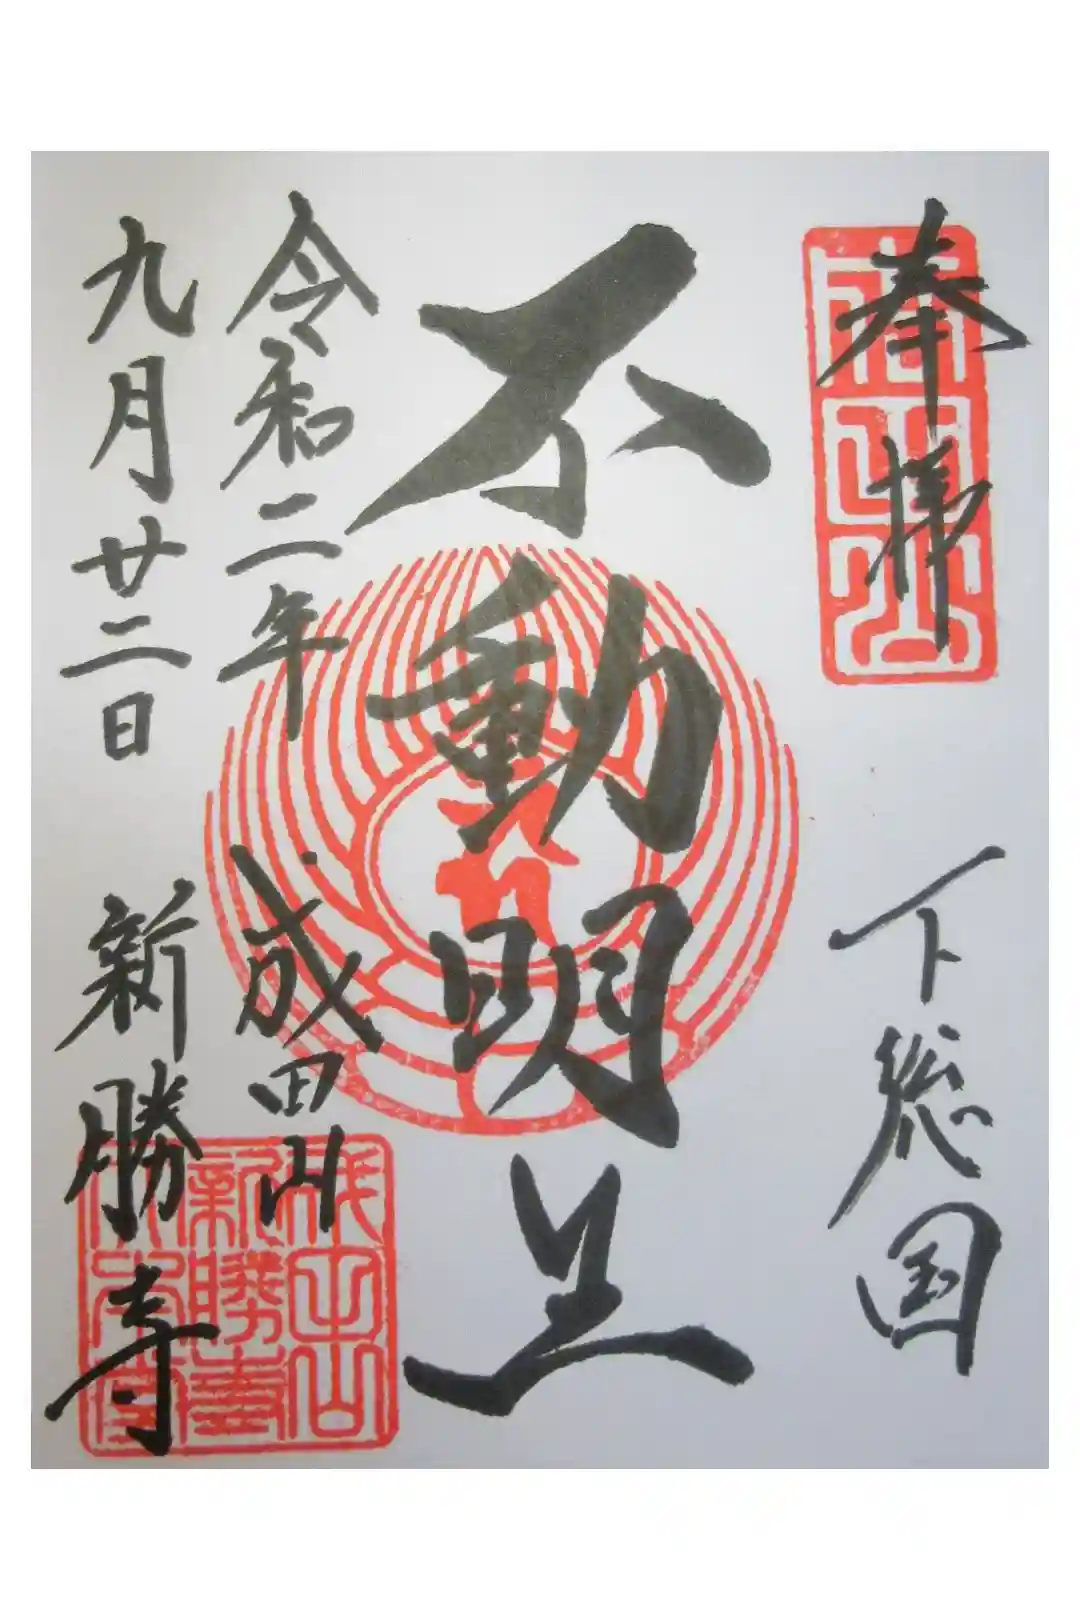 奉拝
下総国
不動明王
令和二年
成田山
九月廿二日
新勝寺
成田山
新勝寺
大本堂